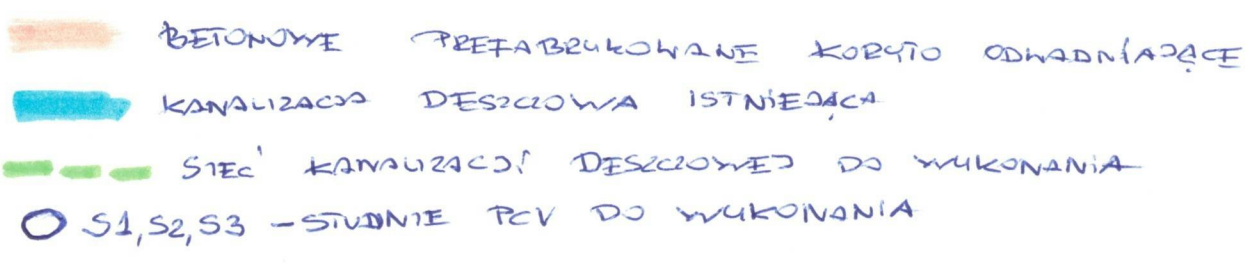 BETONOWE PREFABRYKOWANE KORYTO ODWADNIAJĄCE
KANALIZACJA DESZCZOWA ISTNIEJĄCA
SIEĆ KANALIZACJI DESZCZOWEJ DO WYKONANIA
S1, S2, S3 - STUDNIE PCV DO WYKONANIA